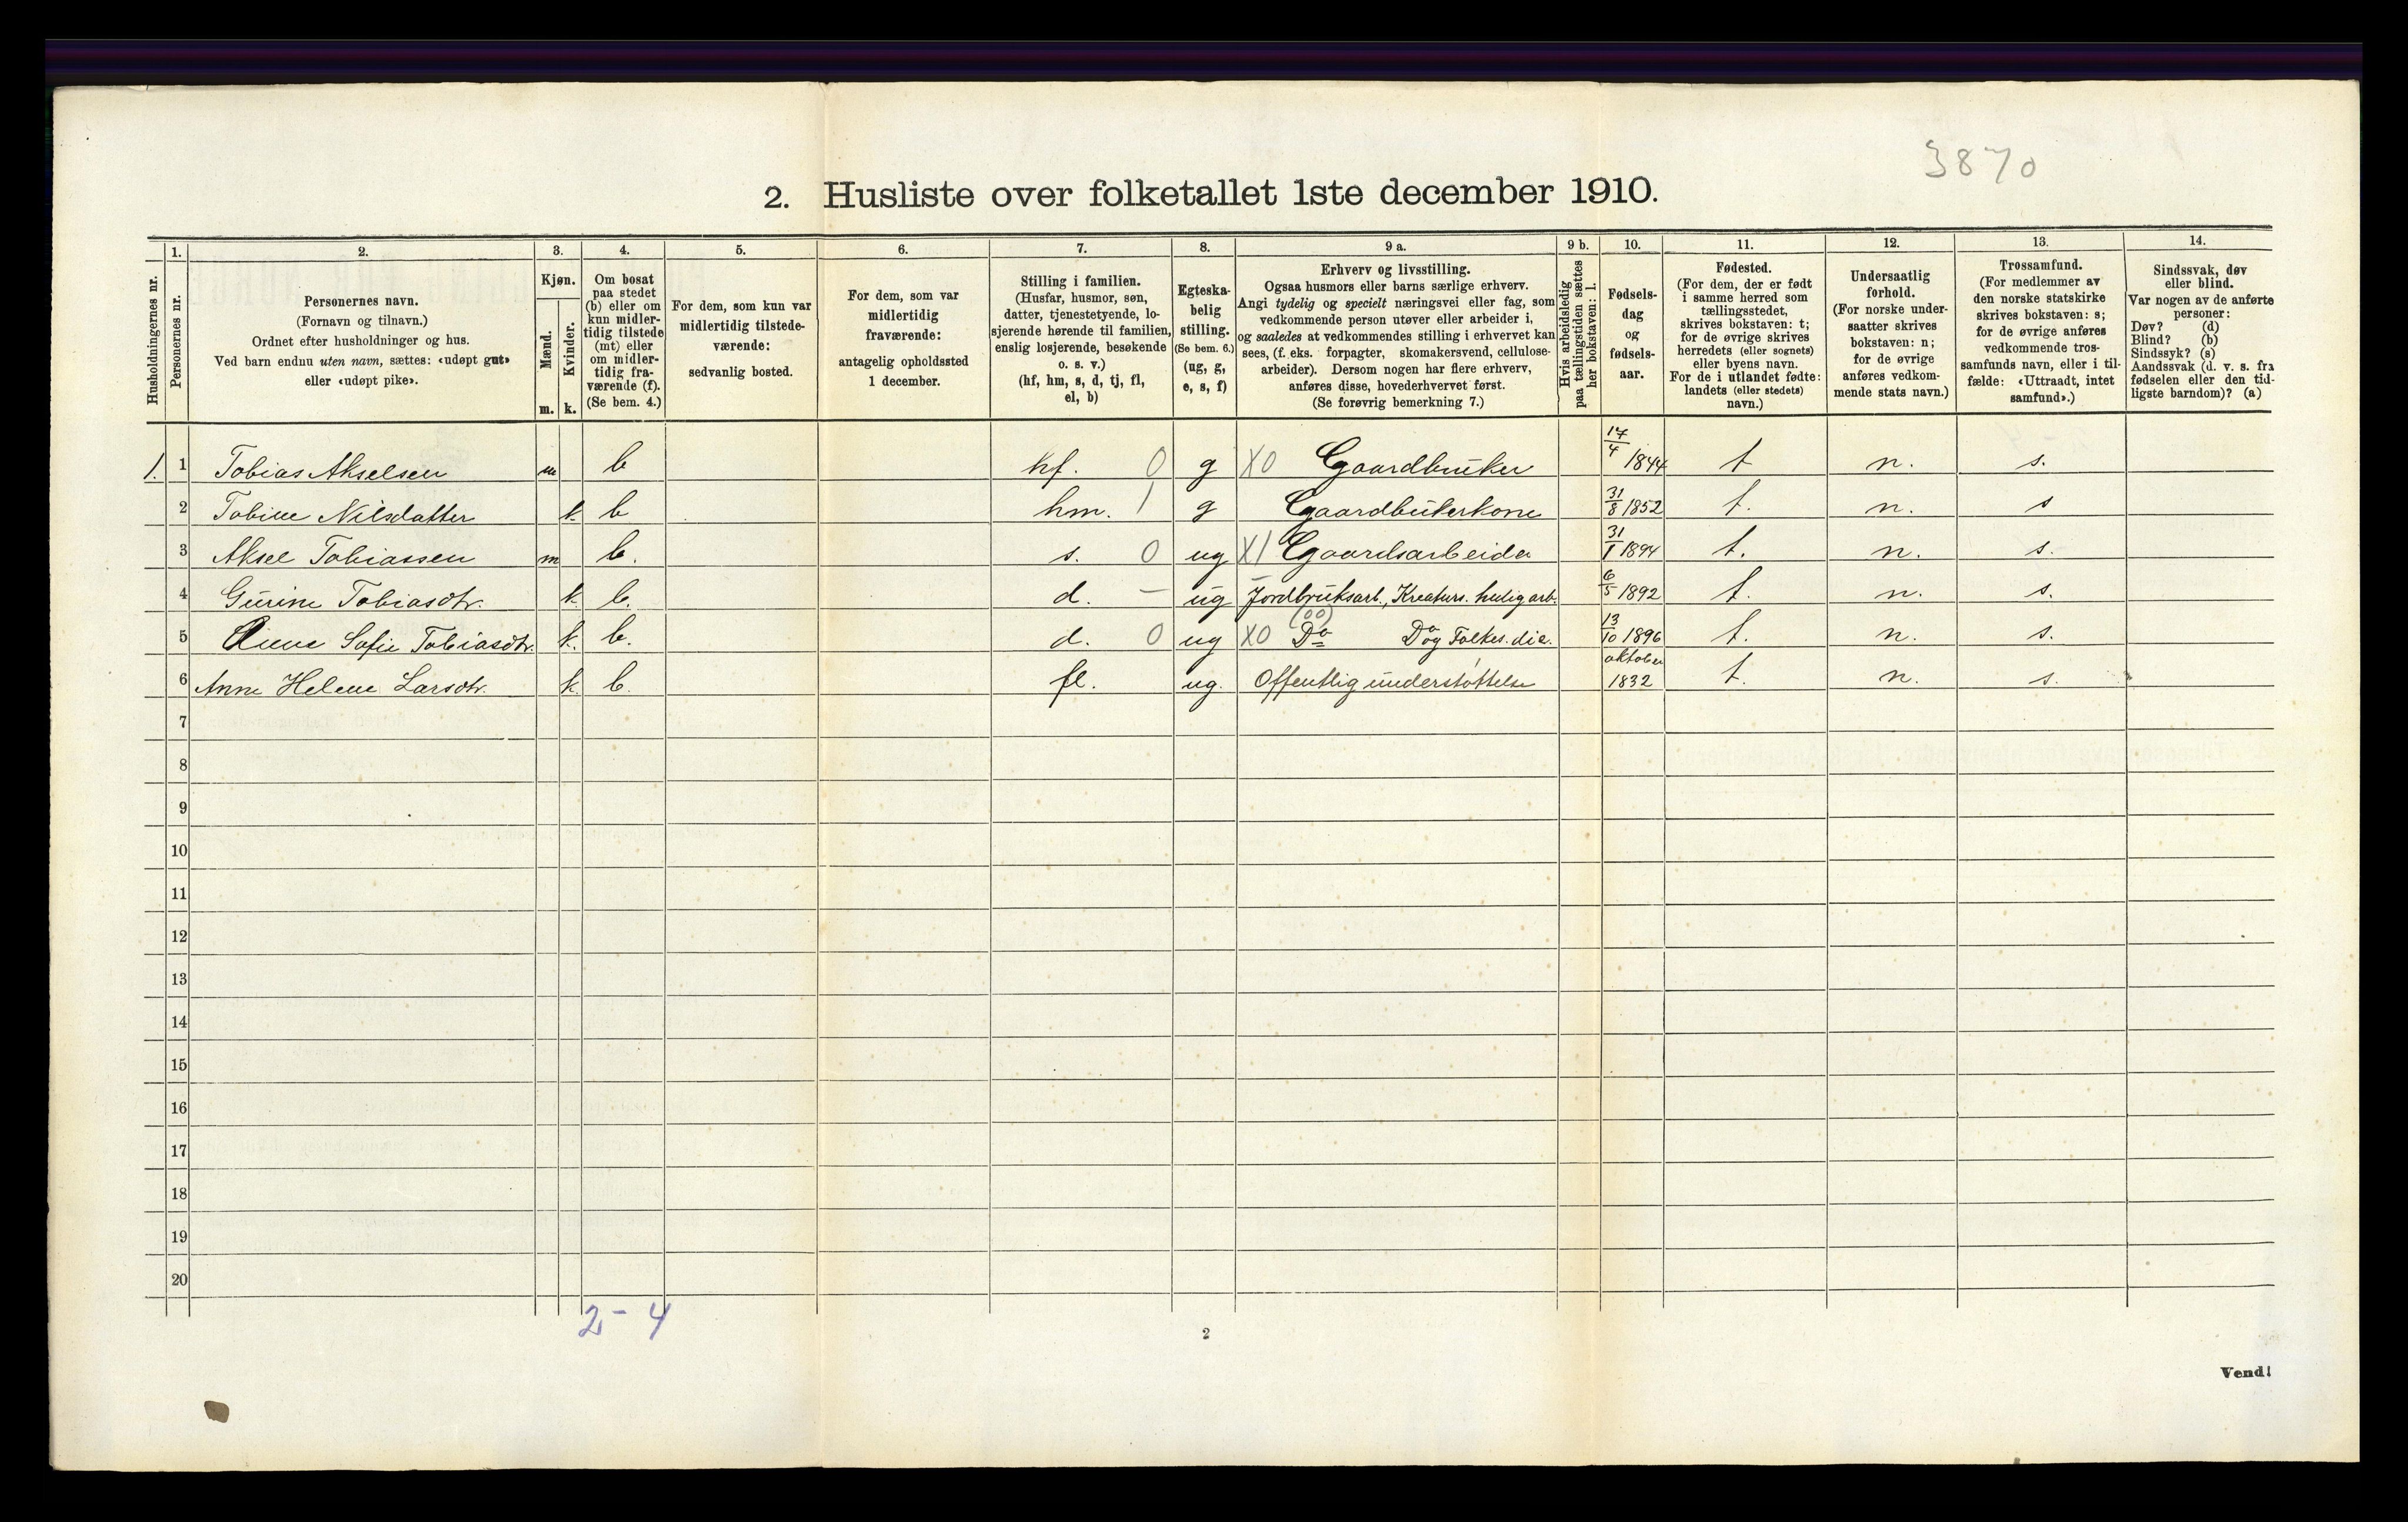 3870
2. Husliste over folketallet 1ste december 1910.
Husholdningernes nr.
1.
Personernes nr.
2.
Personernes navn.
(Fornavn og tilnavn.)
Ordnet efter husholdninger og hus.
Ved barn endnu uten navn, sættes: «udøpt gut»
eller «udøpt pike».
3.
Kjøn.
Mænd.
Kvinder.
m. k.
4.
Om bosat
paa stedet
(b) eller om
kun midler-
tidig tilstede
(mt) eller
om midler-
tidig fra-
værende (f).
(Se bem. 4.)
5.
For dem, som kun var
midlertidig tilstede-
værende:
sedvanlig bosted.
6.
For dem, som var
midlertidig
fraværende:
antagelig opholdssted
1 december.
7.
Stilling i familien.
(Husfar, husmor, søn,
datter, tjenestetyende, lo-
sjerende hørende til familien,
enslig losjerende, besøkende
o. s. v.)
(hf, hm, s, d, tj, fl,
el, b)
8.
Egteska-
belig
stilling.
(Se bem. 6.)
(ug, g,
e, s, f)
9 a.
Erhverv og livsstilling.
Ogsaa husmors eller barns særlige erhverv.
Angi tydelig og specielt næringsvei eller fag, som
vedkommende person utøver eller arbeider i,
og saaledes at vedkommendes stilling i erhvervet kan
sees, (f. eks. forpagter, skomakersvend, cellulose-
arbeider). Dersom nogen har flere erhverv,
anføres disse, hovederhvervet først.
(Se forøvrig bemerkning 7.)
9 b.
Hvis arbeidsledig
paa tællingstiden sættes
her bokstaven: l.
10.
Fødsels-
dag
og
fødsels-
aar.
11.
Fødested.
(For dem, der er født
i samme herred som
tællingsstedet,
skrives bokstaven: t;
for de øvrige skrives
herredets (eller sognets)
eller byens navn.
For de i utlandet fødte:
landets (eller stedets)
navn.)
12.
Undersaatlig
forhold.
(For norske under-
saatter skrives
bokstaven: n;
for de øvrige
anføres vedkom-
mende stats navn.)
13.
Trossamfund.
(For medlemmer av
den norske statskirke
skrives bokstaven: s;
for de øvrige anføres
vedkommende tros-
samfunds navn, eller i til-
fælde: «Uttraadt, intet
samfund».)
14.
Sindssvak, døv
eller blind.
Var nogen av de anførte
personer:
Døv? (d)
Blind? (b)
Sindssyk? (s)
Aandssvak (d. v. s. fra
fødselen eller den tid-
ligste barndom)? (a)
1. 1 Tobias Akselsen m b hf. 0 g X0 Gaardbruker 17/4 1844 t n. s.
2 Tobine Nilsdatter k. b hm. 1 g Gaardbrukerkone 31/8 1852 t. n. s
3 Aksel Tobiassen m b. s. 0 ug X1 Gaardsarbeider 31/1 1894 t. n. s.
4 Gurine Tobiasdtr. k. b. d. – ug Jordbruksarb., Kreaturs. 6/5 1892 t. n. s.
(00)
5 Sofie Tobiasdtr. k. b. d. 0 ug X0 Do Do og Folkes. 13/10 1896 t. n. s.
6 Anne Helene Larsdtr. k b. fl. ug. Offentlig understøttelse oktober 1832 t. n. s.
7
8
9
10
11
12
13
14
15
16
17
18
19
20
2 - 4
2
Vend!